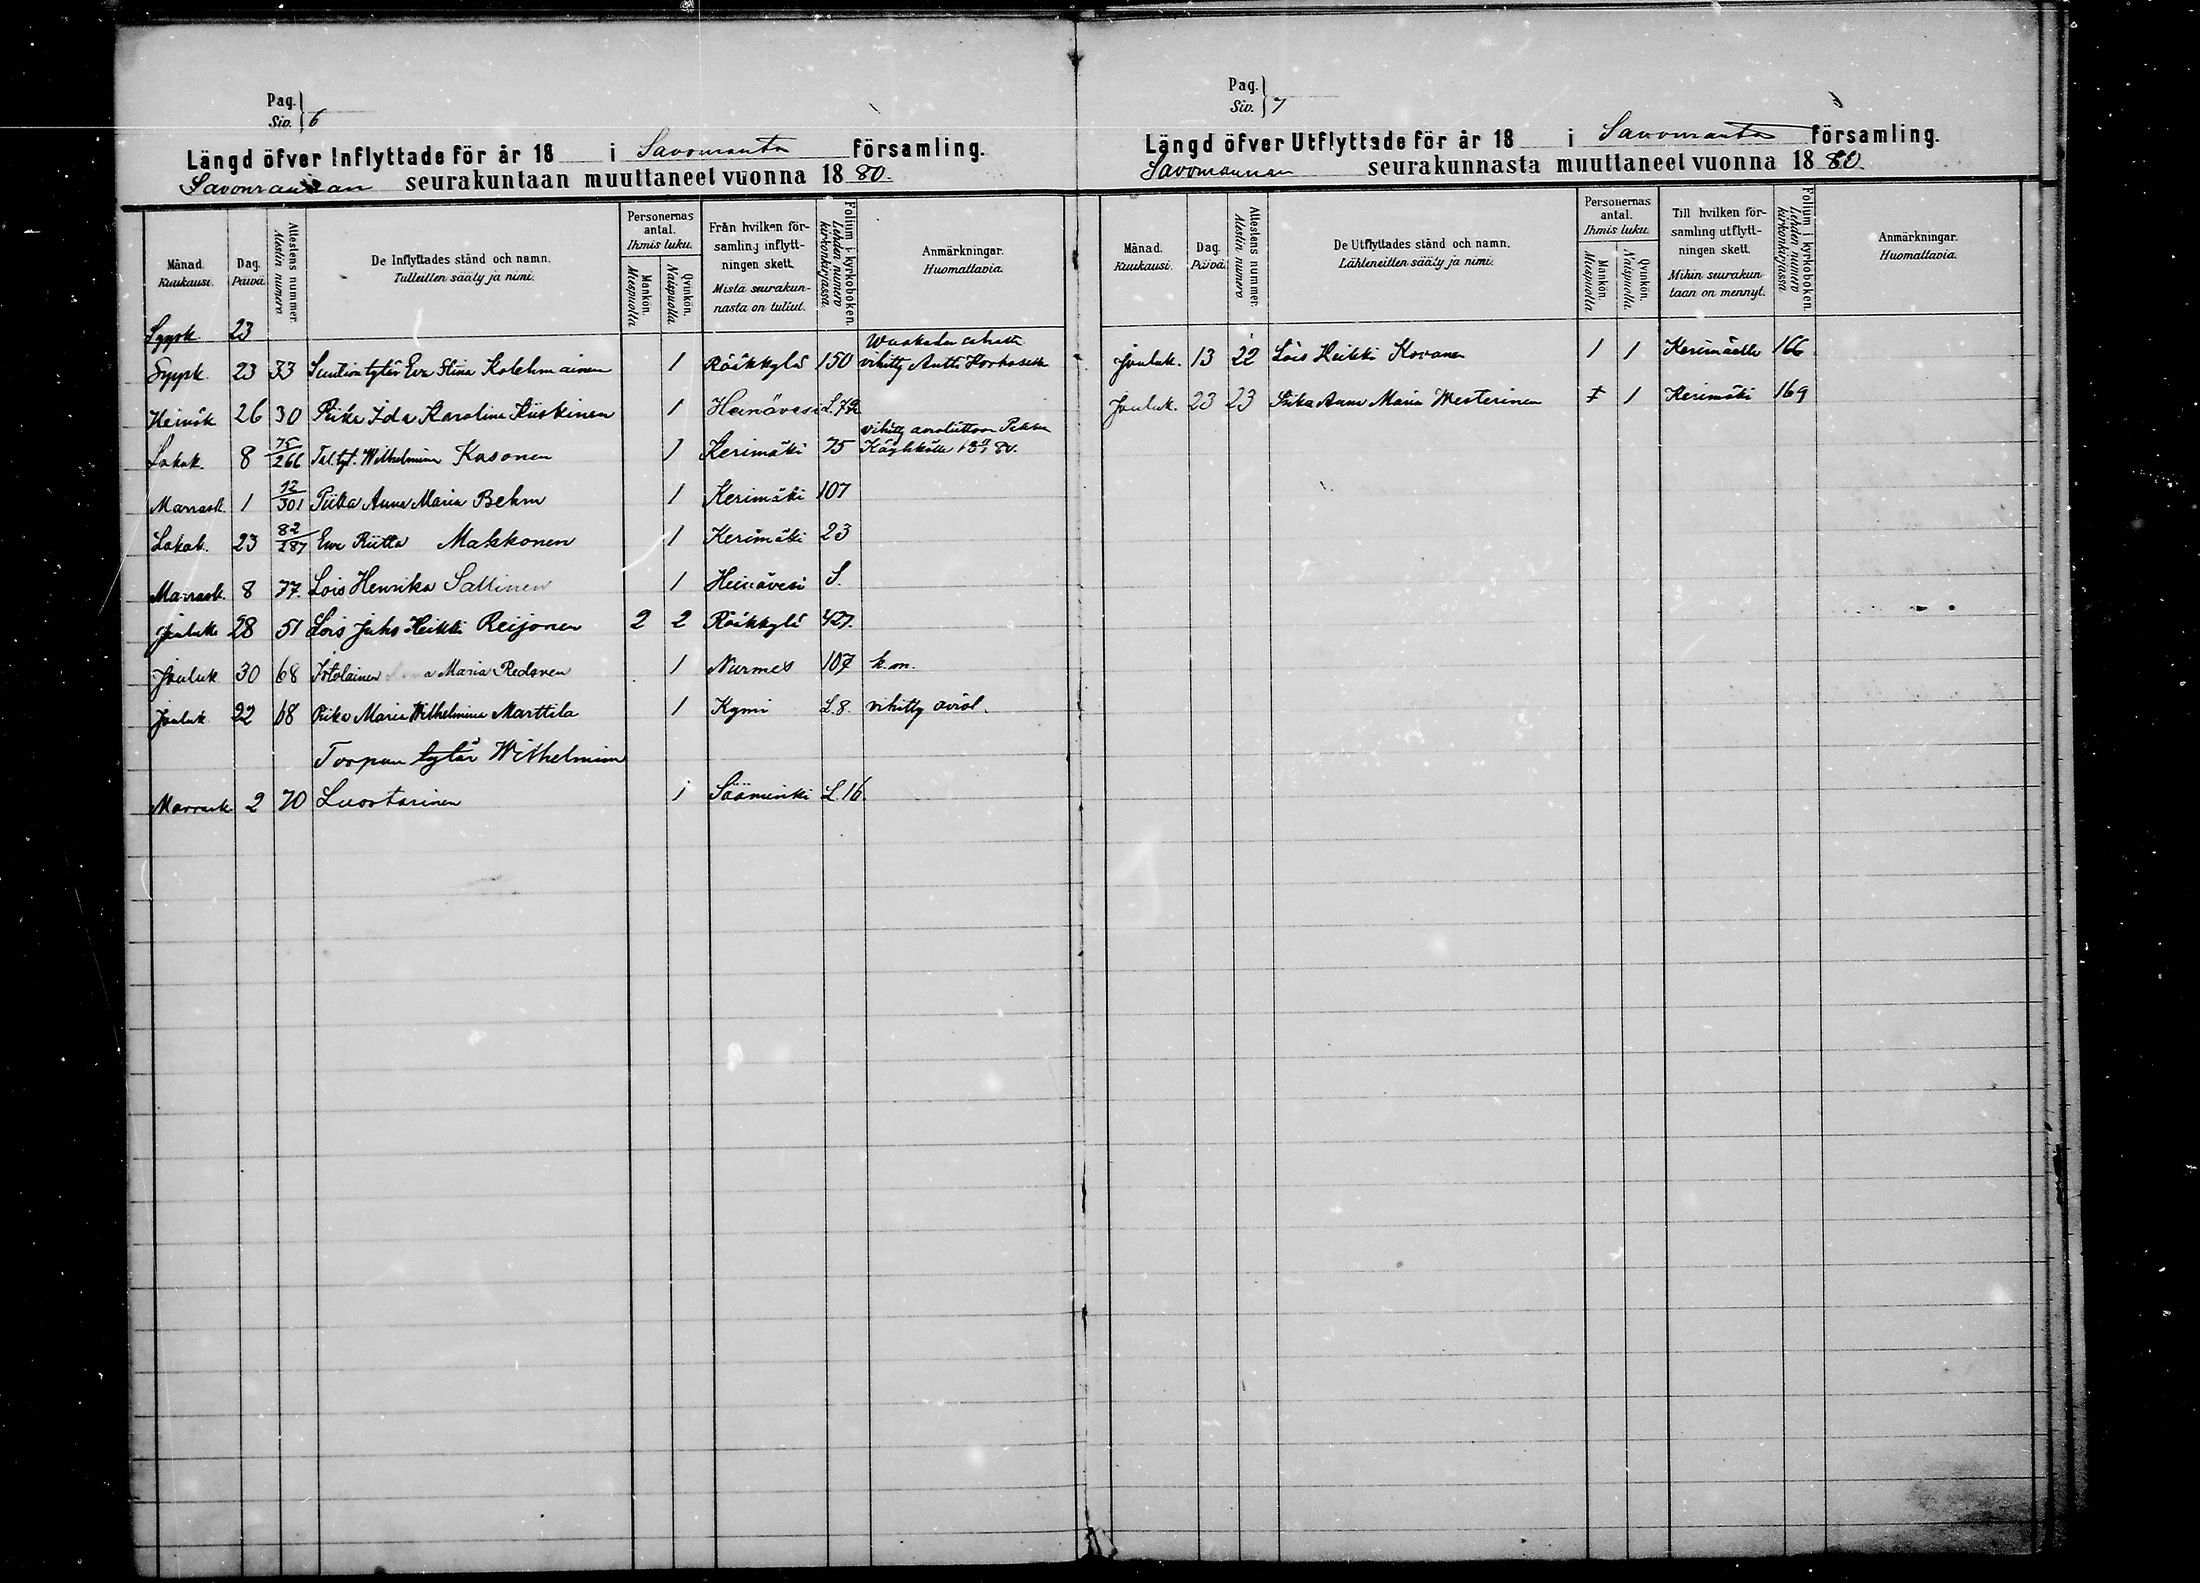 Pag.
Siv. 6
Längd öfver Inflyttade för år 18 i Savonranta församling.
Savonrannan seurakuntaan muuttaneet vuonna 1880.
Månad. Kuukausi.
Dag. Päivä.
Attestens nummer. Atestin numero
De Inflyttades stånd och namn. Tulleitten sääty ja nimi.
Personernas antal. Ihmis luku.
Mankön. Miespuolia
Qvinkön. Naispuolia
Från hvilken församling inflyttningen skett. Mistä seurakunnasta on tullut.
Folium i kyrkoboken. Lehden numero kirkonkirjassa
Anmärkningar. Huomattavia.
Syysk 23
Syysk. 23 33 Suution tytär Eva Stina Kolehmainen 1 Rääkkylä 150 vihitty Antti
Heinäk 26 30 Piika Ida Karolina Kiiskinen 1 Heinävesi L.72
Lokak. 8 75/266 Tal.tyt. Wilhelmina Kasonen 1 Kerimäki 75 vihitty Pekka
Marrask. 1 12/301 Piika Anna Maria Behm 1 Kerimäki 107
Lokak. 23 82/287 Eva Riitta Makkonen 1 Kerimäki 23
Marrask. 8 77. Lois Henrika Sallinen 1 Heinävesi S.
Jouluk. 28 51 Lois Juho Heikki Reijonen 2 2 Rääkkylä 427.
Jouluk 30 68 Itsolainen Maria Redsven 1 Nurmes 107 k.m.
Jouluk 22 68 Piika Maria Wilhelmina Marttila 1 Kymi L.8. vihitty
Torpan tytär Wilhelmina
Marrask. 2 70 Luostarinen 1 Sääminki L.16.
Pag.
Siv. 7
Längd öfver Utflyttade för år 18 i Savonranta församling.
Savonrannan seurakunnasta muuttaneet vuonna 1880.
Månad. Kuukausi.
Dag. Päivä.
Attestens nummer. Atestin numero
De Utflyttades stånd och namn. Lähteneitten sääty ja nimi.
Personernas antal. Ihmis luku.
Mankön. Miespuolia
Qvinkön. Naispuolia
Till hvilken församling utflyttningen skett. Mihin seurakuntaan on mennyt.
Folium i kyrkoboken. Lehden numero kirkonkirjassa
Anmärkningar. Huomattavia.
Jouluk. 13 22 Lois Heikki Kovanen 1 1 Kerimäelle 166
Jouluk. 23 23 Piika Anna Maria Westerinen 1 Kerimäki 169